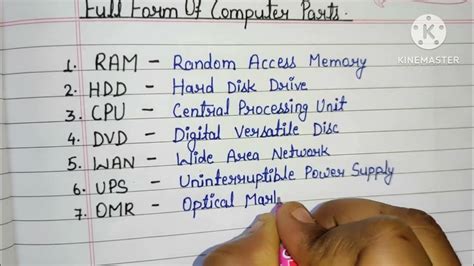 Full Form Of Computer Parts.
KINEMASTER
1. RAM - Random Access Memory
2. HDD - Hard Disk Drive
3. CPU - Central Processing Unit
4. DVD - Digital Versatile Disc
5. WAN - Wide Area Network
6. UPS - Uninterruptible Power Supply
7. OMR - Optical Mar